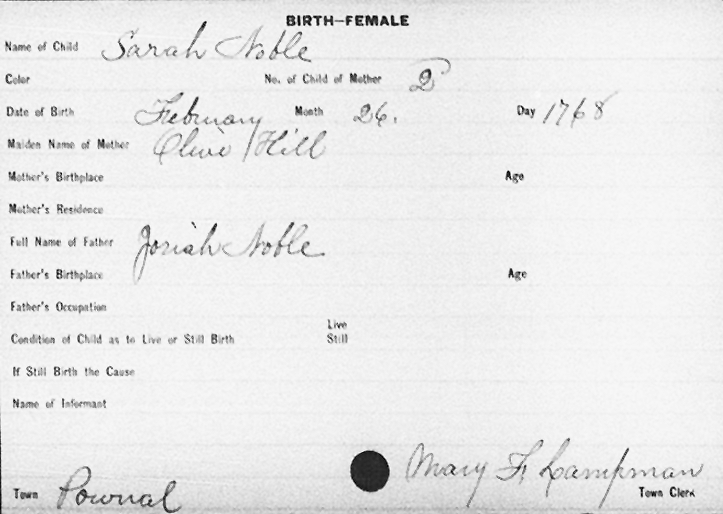 BIRTH—FEMALE
Name of Child Sarah Noble
Color No. of Child of Mother 2
Date of Birth February Month 26. Day 1768
Maiden Name of Mother Olive Hill
Mother's Birthplace Age
Mother's Residence
Full Name of Father Josiah Noble
Father's Birthplace Age
Father's Occupation
Live
Condition of Child as to Live or Still Birth Still
If Still Birth the Cause
Name of Informant
Mary F. Lampman
Town Pownal Town Clerk